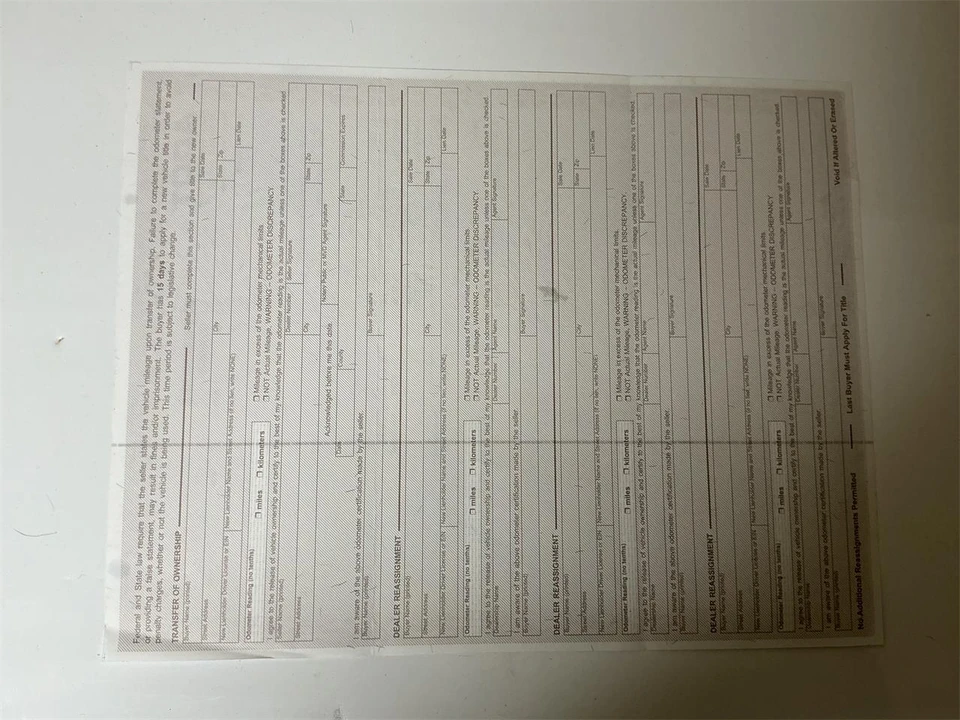 Federal and State law require that the seller states the vehicle mileage upon transfer of ownership. Failure to complete the odometer statement,
or providing a false statement, may result in fines and/or imprisonment. The buyer has 15 days to apply for a new vehicle title in order to avoid
penalty charges, whether or not the vehicle is being used. This time period is subject to legislative change.
TRANSFER OF OWNERSHIP Seller must complete this section and give title to the new owner.
Buyer Name (printed) Sale Date
Street Address City State Zip
New Lienholder Driver License or EIN New Lienholder Name and Street Address (if no lien, write NONE) Lien Date
Odometer Reading (no tenths) miles kilometers Mileage in excess of the odometer mechanical limits.
NOT Actual Mileage, WARNING – ODOMETER DISCREPANCY.
I agree to the release of vehicle ownership and certify to the best of my knowledge that the odometer reading is the actual mileage unless one of the boxes above is checked.
Seller Name (printed) Dealer Number Seller Signature
Street Address City State Zip
Acknowledged before me this date. Notary Public or MVD Agent Signature
Date County State Commission Expires
I am aware of the above odometer certification made by the seller.
Buyer Name (printed) Buyer Signature
DEALER REASSIGNMENT
Buyer Name (printed) Sale Date
Street Address City State Zip
New Lienholder Driver License or EIN New Lienholder Name and Street Address (if no lien, write NONE) Lien Date
Odometer Reading (no tenths) miles kilometers Mileage in excess of the odometer mechanical limits.
NOT Actual Mileage, WARNING – ODOMETER DISCREPANCY.
I agree to the release of vehicle ownership and certify to the best of my knowledge that the odometer reading is the actual mileage unless one of the boxes above is checked.
Dealership Name Dealer Number Agent Name Agent Signature
I am aware of the above odometer certification made by the seller.
Buyer Name (printed) Buyer Signature
DEALER REASSIGNMENT
Buyer Name (printed) Sale Date
Street Address City State Zip
New Lienholder Driver License or EIN New Lienholder Name and Street Address (if no lien, write NONE) Lien Date
Odometer Reading (no tenths) miles kilometers Mileage in excess of the odometer mechanical limits.
NOT Actual Mileage, WARNING – ODOMETER DISCREPANCY.
I agree to the release of vehicle ownership and certify to the best of my knowledge that the odometer reading is the actual mileage unless one of the boxes above is checked.
Dealership Name Dealer Number Agent Name Agent Signature
I am aware of the above odometer certification made by the seller.
Buyer Name (printed) Buyer Signature
DEALER REASSIGNMENT
Buyer Name (printed) Sale Date
Street Address City State Zip
New Lienholder Driver License or EIN New Lienholder Name and Street Address (if no lien, write NONE) Lien Date
Odometer Reading (no tenths) miles kilometers Mileage in excess of the odometer mechanical limits.
NOT Actual Mileage, WARNING – ODOMETER DISCREPANCY.
I agree to the release of vehicle ownership and certify to the best of my knowledge that the odometer reading is the actual mileage unless one of the boxes above is checked.
Dealership Name Dealer Number Agent Name Agent Signature
I am aware of the above odometer certifications made by the seller.
Buyer Name (printed) Buyer Signature
No Additional Reassignments Permitted Last Buyer Must Apply For Title Void If Altered Or Erased